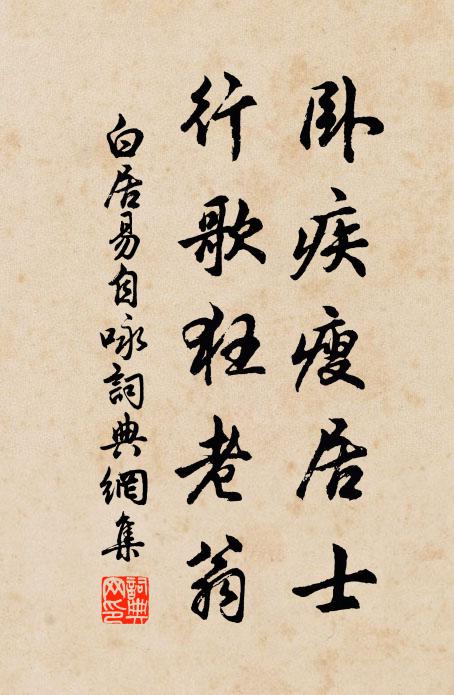 卧疾瘦居士
行歌狂老翁
白居易自咏詞典網集
詞典網印